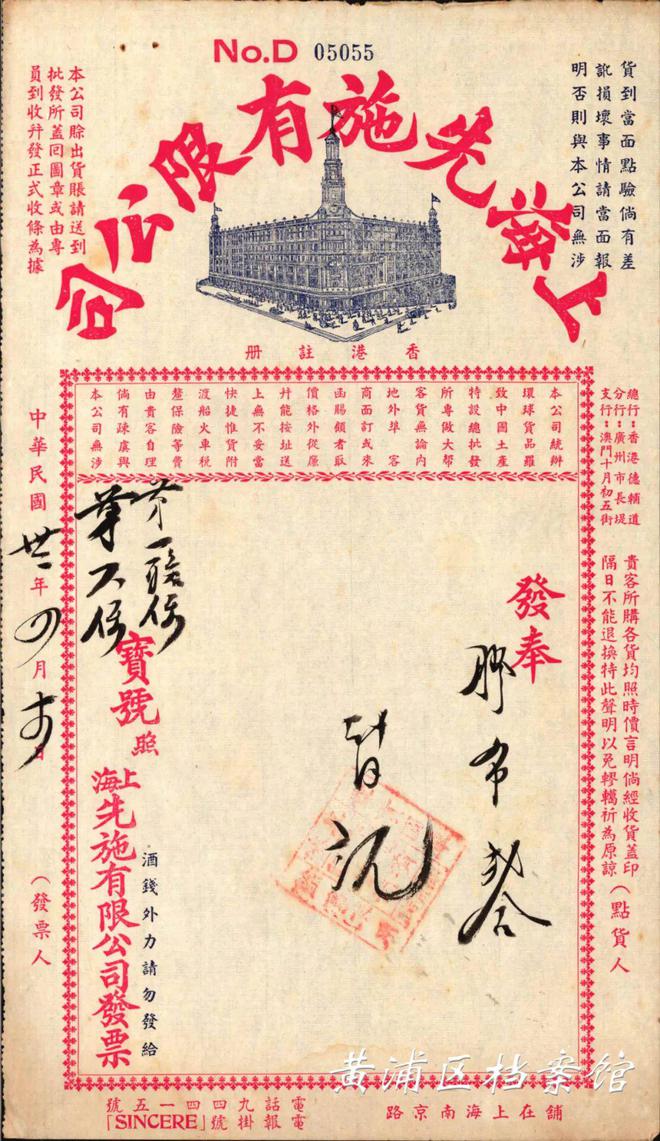 No.D 05055
貨到當面點驗倘有差
訛損壞事情請當面報
明否則與本公司無涉
上海先施有限公司
本公司賒出貨賬請送到
批發所蓋回圖章或由專
員到收幷發正式收條為據
香港註冊
總行：香港德輔道
分行：廣州市長堤
支行：澳門十月初五街
本公司統辦
環球貨品羅
致中國土產
特設總批發
所專做大幫
客貨無論內
地外埠客
商面訂或來
函賜顧者取
價格外從廉
幷能按址送
上無不妥當
快捷惟貨附
渡船火車稅
釐保險等費
由貴客自理
倘有疎虞與
本公司無涉
貴客所購各貨均照時價言明倘經收貨蓋印
隔日不能退換特此聲明以免轇轕祈為原諒
（點貨人
發奉
寶號照
上海先施有限公司發票
酒錢外力請勿發給
中華民國卅二年四月 日
（發票人
舖在上海南京路
電話九四四一五號
電報掛號「SINCERE」
黄浦区档案馆